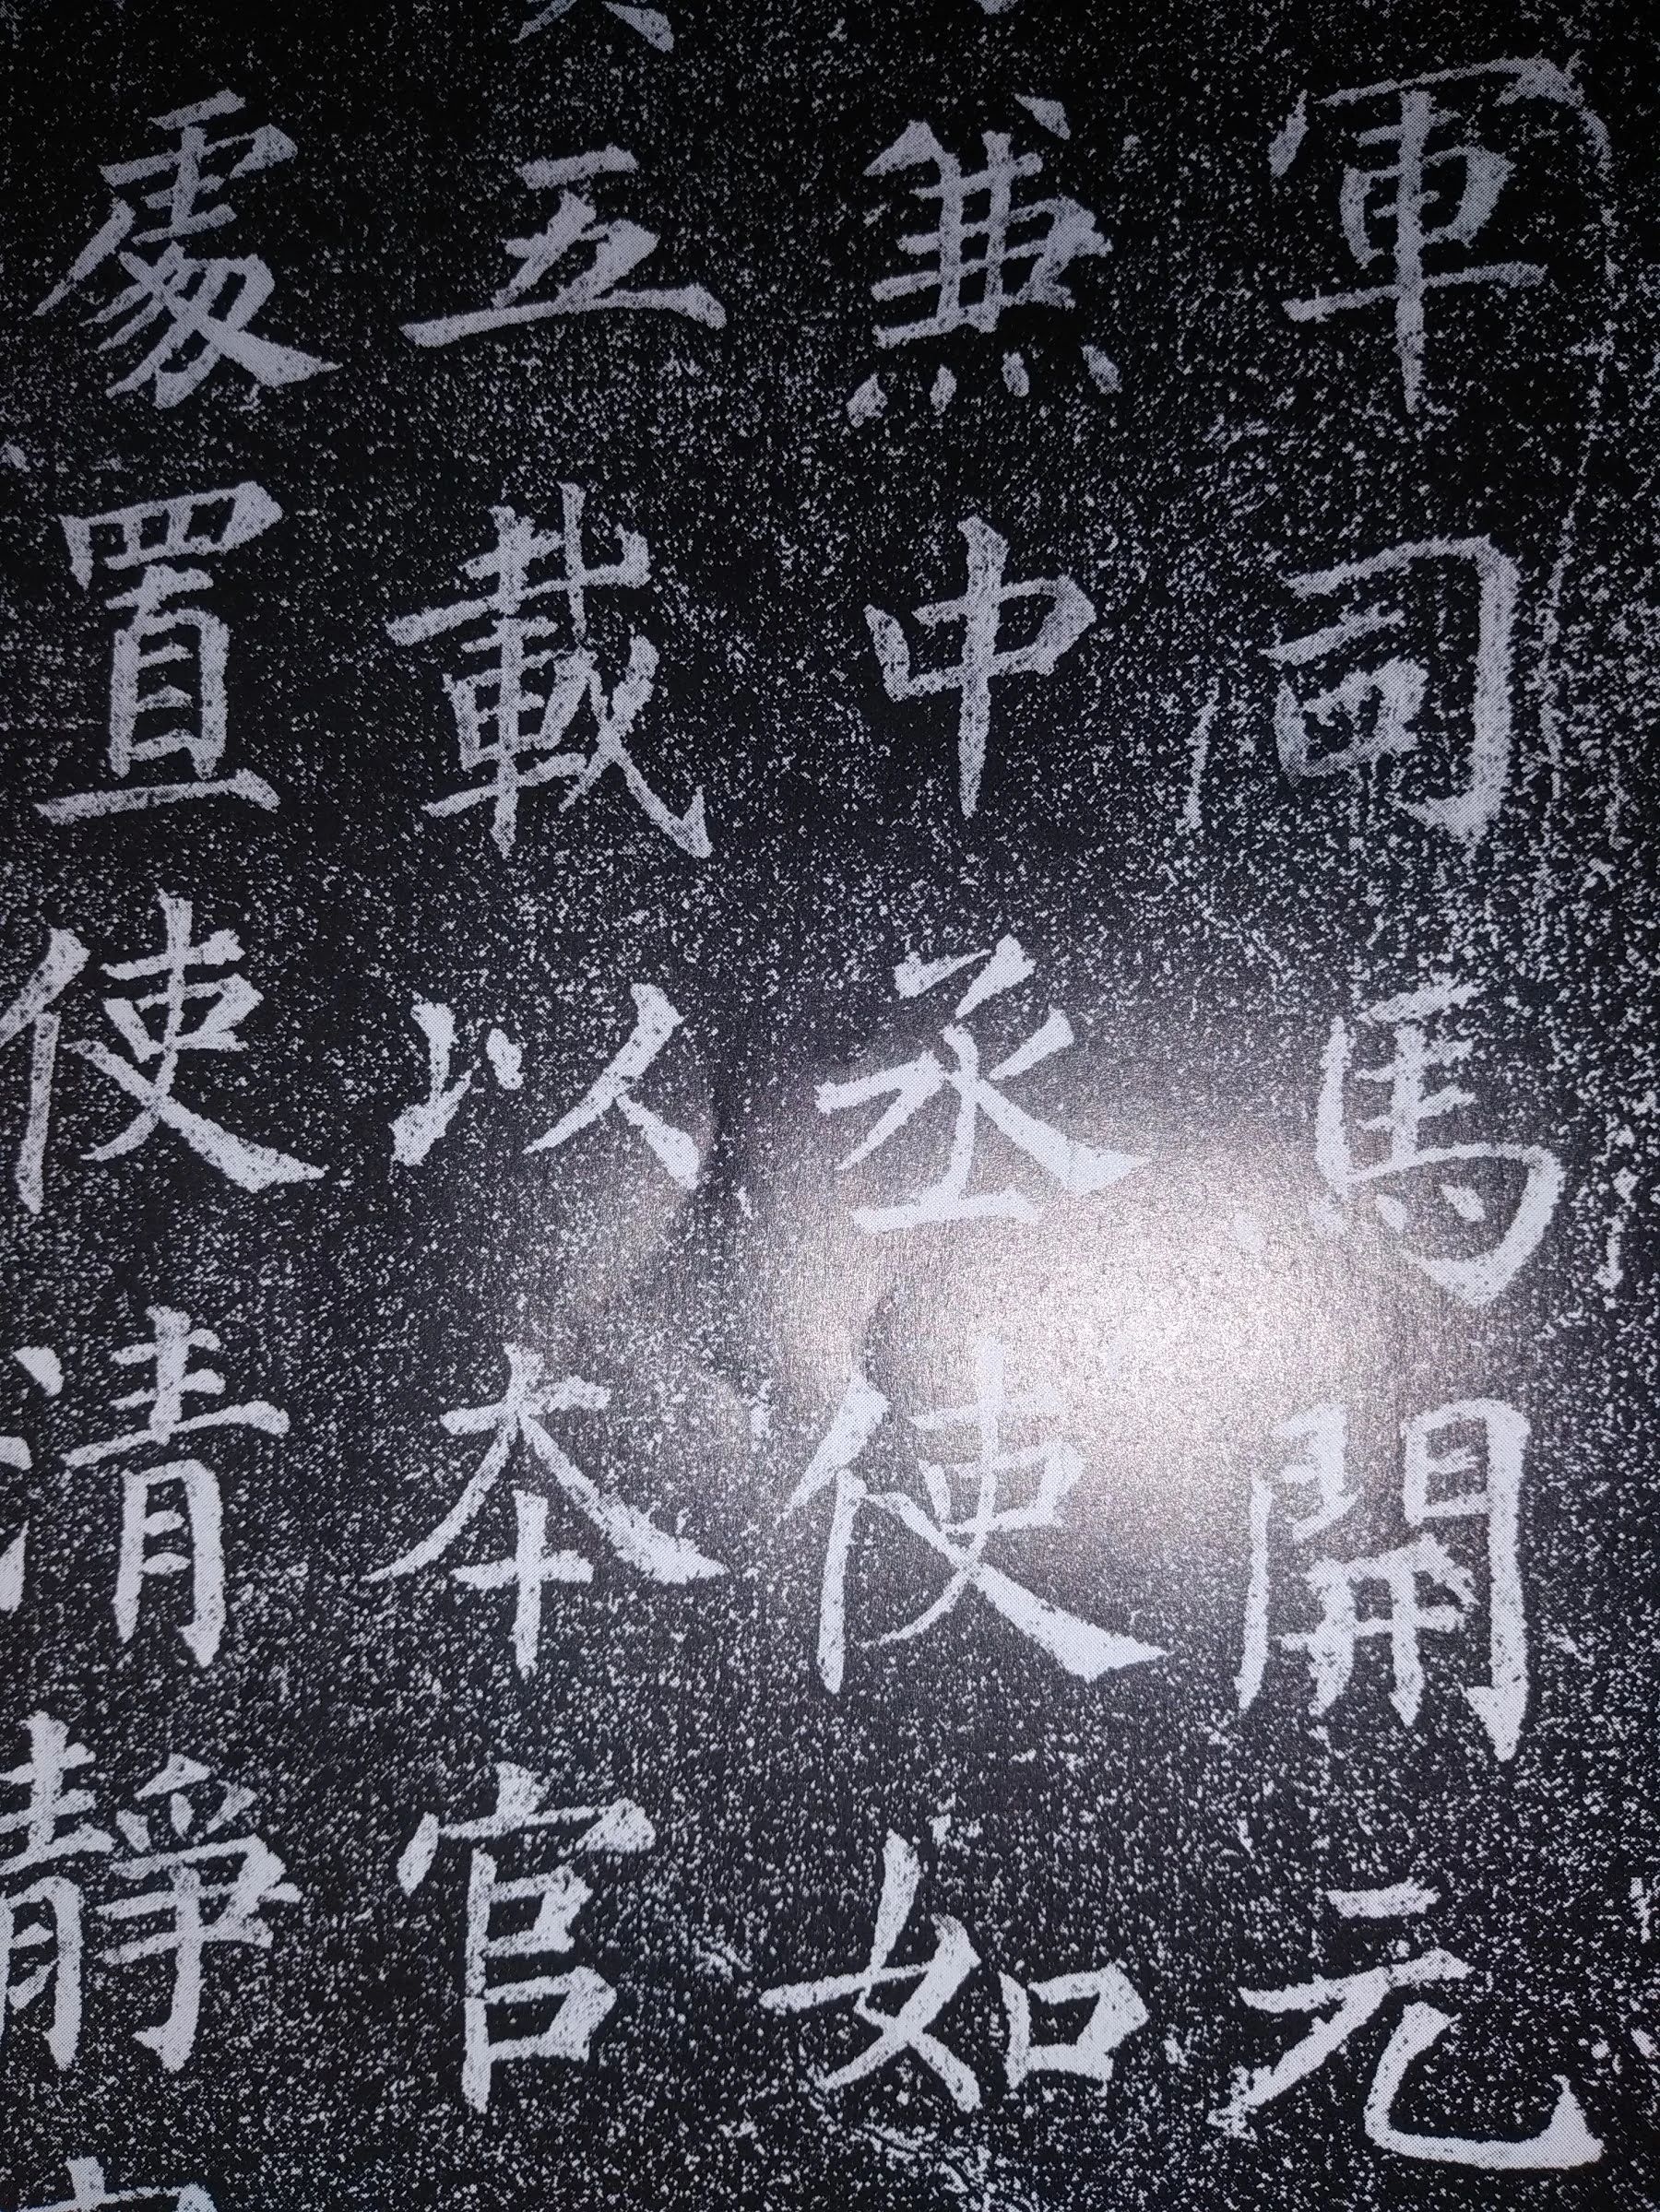 軍司馬開元
兼中丞使如
五載以本官
處置使清靜